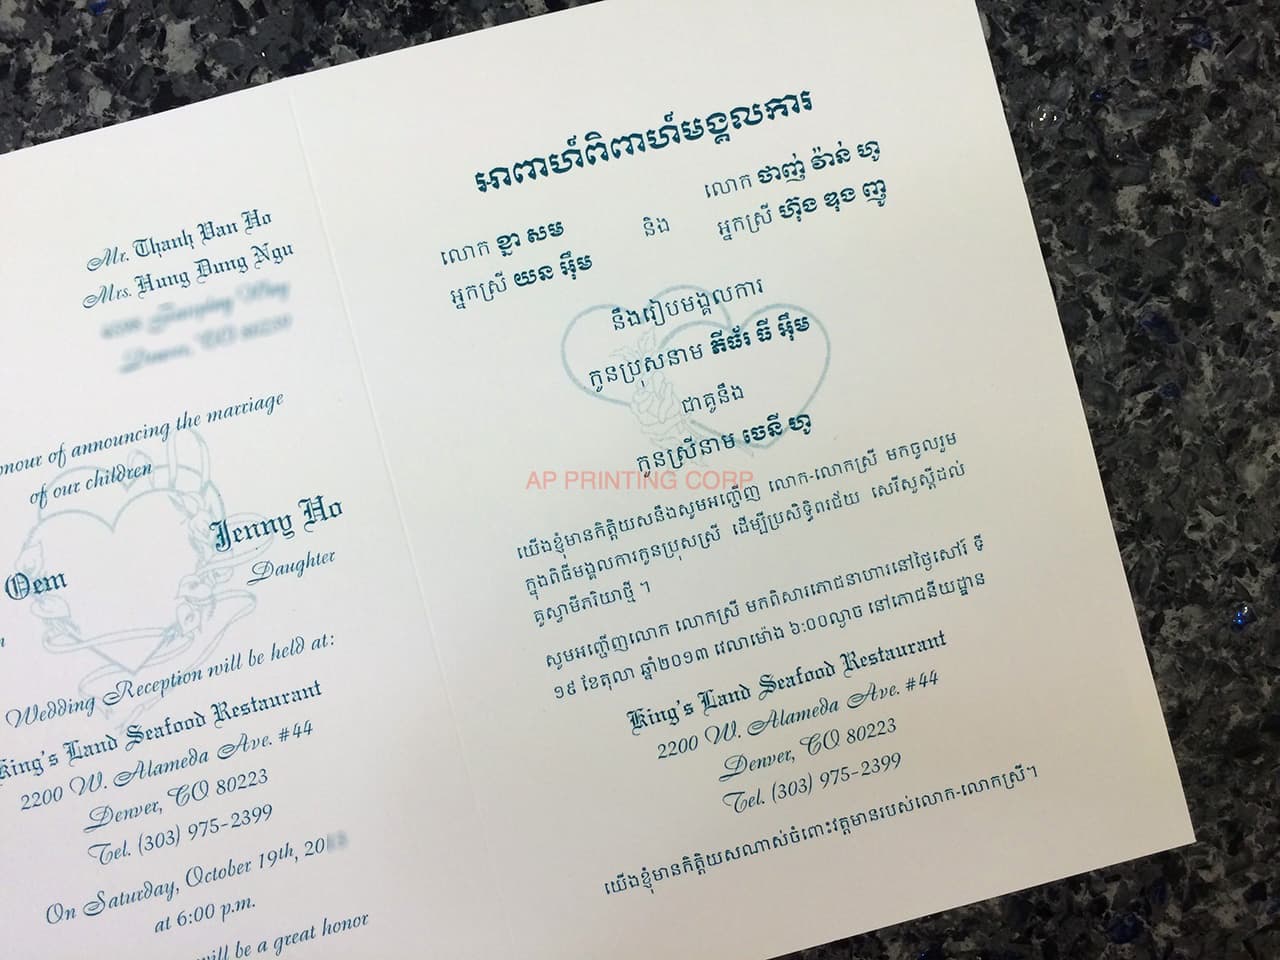 Mr. Thanh Van Ho
Mrs. Hung Dung Ngu
Denver, CO
onour of announcing the marriage
of our children
Jenny Ho
Oem
Daughter
Wedding Reception will be held at:
King's Land Seafood Restaurant
2200 W. Alameda Ave. #44
Denver, CO 80223
Tel. (303) 975-2399
On Saturday, October 19th, 20
at 6:00 p.m.
will be a great honor
អាពាហ៍ពិពាហ៍មង្គលការ
លោក ខ្នា សម
និង
លោក ថាញ់ វ៉ាន់ ហូ
អ្នកស្រី យន អ៊ឹម
អ្នកស្រី ហ៊ុង ឌុង ញូ
នឹងរៀបមង្គលការ
កូនប្រុសនាម ភីធ័រ ធី អ៊ឹម
ជាគូនឹង
កូនស្រីនាម ចេនី ហូ
AP PRINTING CORP
យើងខ្ញុំមានកិត្តិយសនឹងសូមអញ្ជើញ លោក-លោកស្រី មកចូលរួម
ក្នុងពិធីមង្គលការកូនប្រុសស្រី ដើម្បីប្រសិទ្ធិពរជ័យ សេរីសួស្តីដល់
គូស្វាមីភរិយាថ្មី ។
សូមអញ្ជើញលោក លោកស្រី មកពិសារភោជនាហារនៅថ្ងៃសៅរ៍ ទី
១៩ ខែតុលា ឆ្នាំ២០១៣ វេលាម៉ោង ៦:០០ល្ងាច នៅភោជនីយដ្ឋាន
King's Land Seafood Restaurant
2200 W. Alameda Ave. #44
Denver, CO 80223
Tel. (303) 975-2399
យើងខ្ញុំមានកិត្តិយសណាស់ចំពោះវត្តមានរបស់លោក-លោកស្រី។